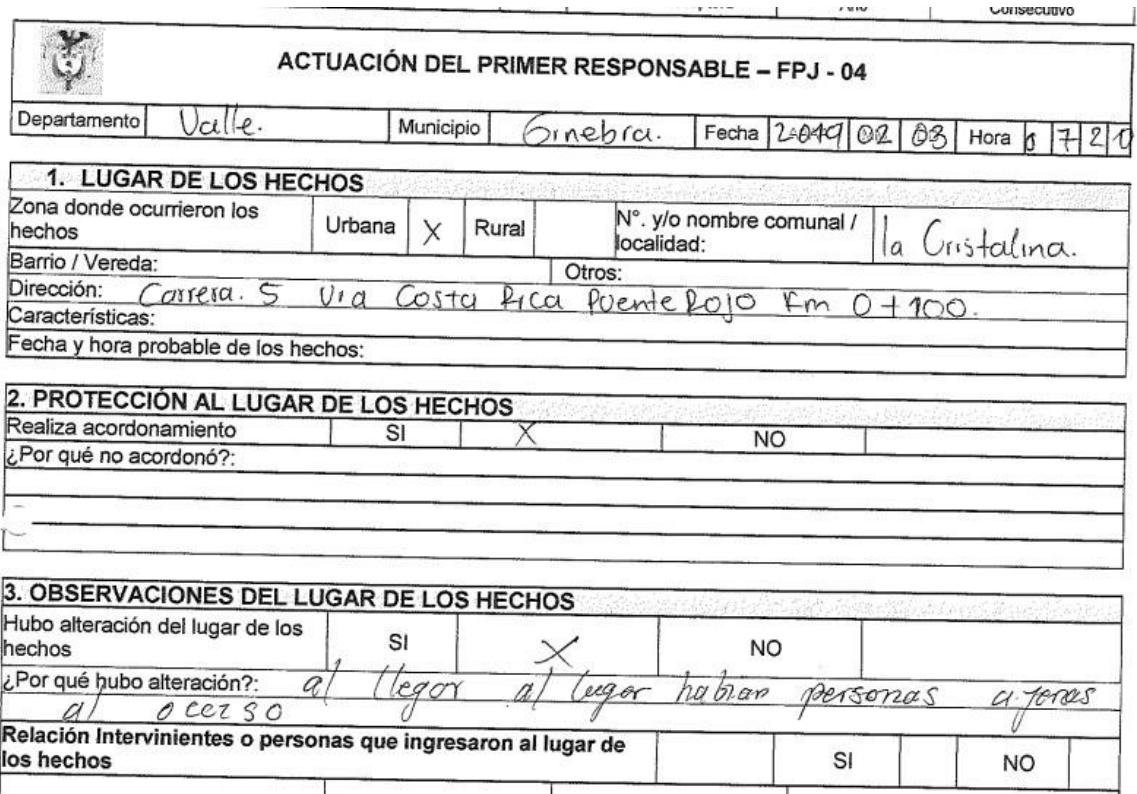 Año Consecutivo
ACTUACIÓN DEL PRIMER RESPONSABLE – FPJ - 04
Departamento Valle. Municipio Ginebra. Fecha 2019 02 03 Hora 0 7 2 0
1. LUGAR DE LOS HECHOS
Zona donde ocurrieron los hechos Urbana X Rural N°. y/o nombre comunal / localidad: la Cristalina.
Barrio / Vereda: Otros:
Dirección: Carrera. 5 Via Costa Rica Puente Rojo Km 0+100.
Características:
Fecha y hora probable de los hechos:
2. PROTECCIÓN AL LUGAR DE LOS HECHOS
Realiza acordonamiento SI X NO
¿Por qué no acordonó?:
3. OBSERVACIONES DEL LUGAR DE LOS HECHOS
Hubo alteración del lugar de los hechos SI X NO
¿Por qué hubo alteración?: al llegar al lugar habian personas ajenas
al
Relación Intervinientes o personas que ingresaron al lugar de los hechos SI NO